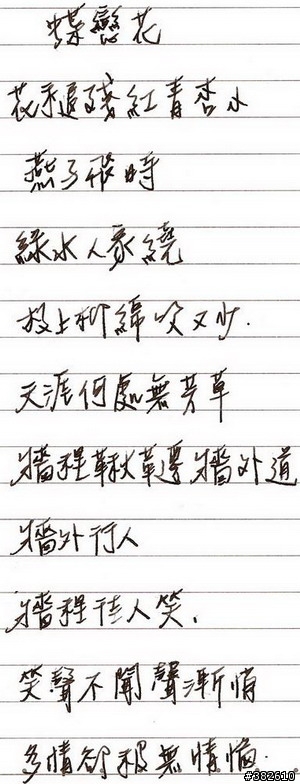 蝶戀花
花褪殘紅青杏小
燕子飛時
綠水人家繞
枝上柳綿吹又少.
天涯何處無芳草
牆裡鞦韆牆外道
牆外行人
牆裡佳人笑.
笑聲不聞聲漸悄
多情卻被無情惱.
#382610